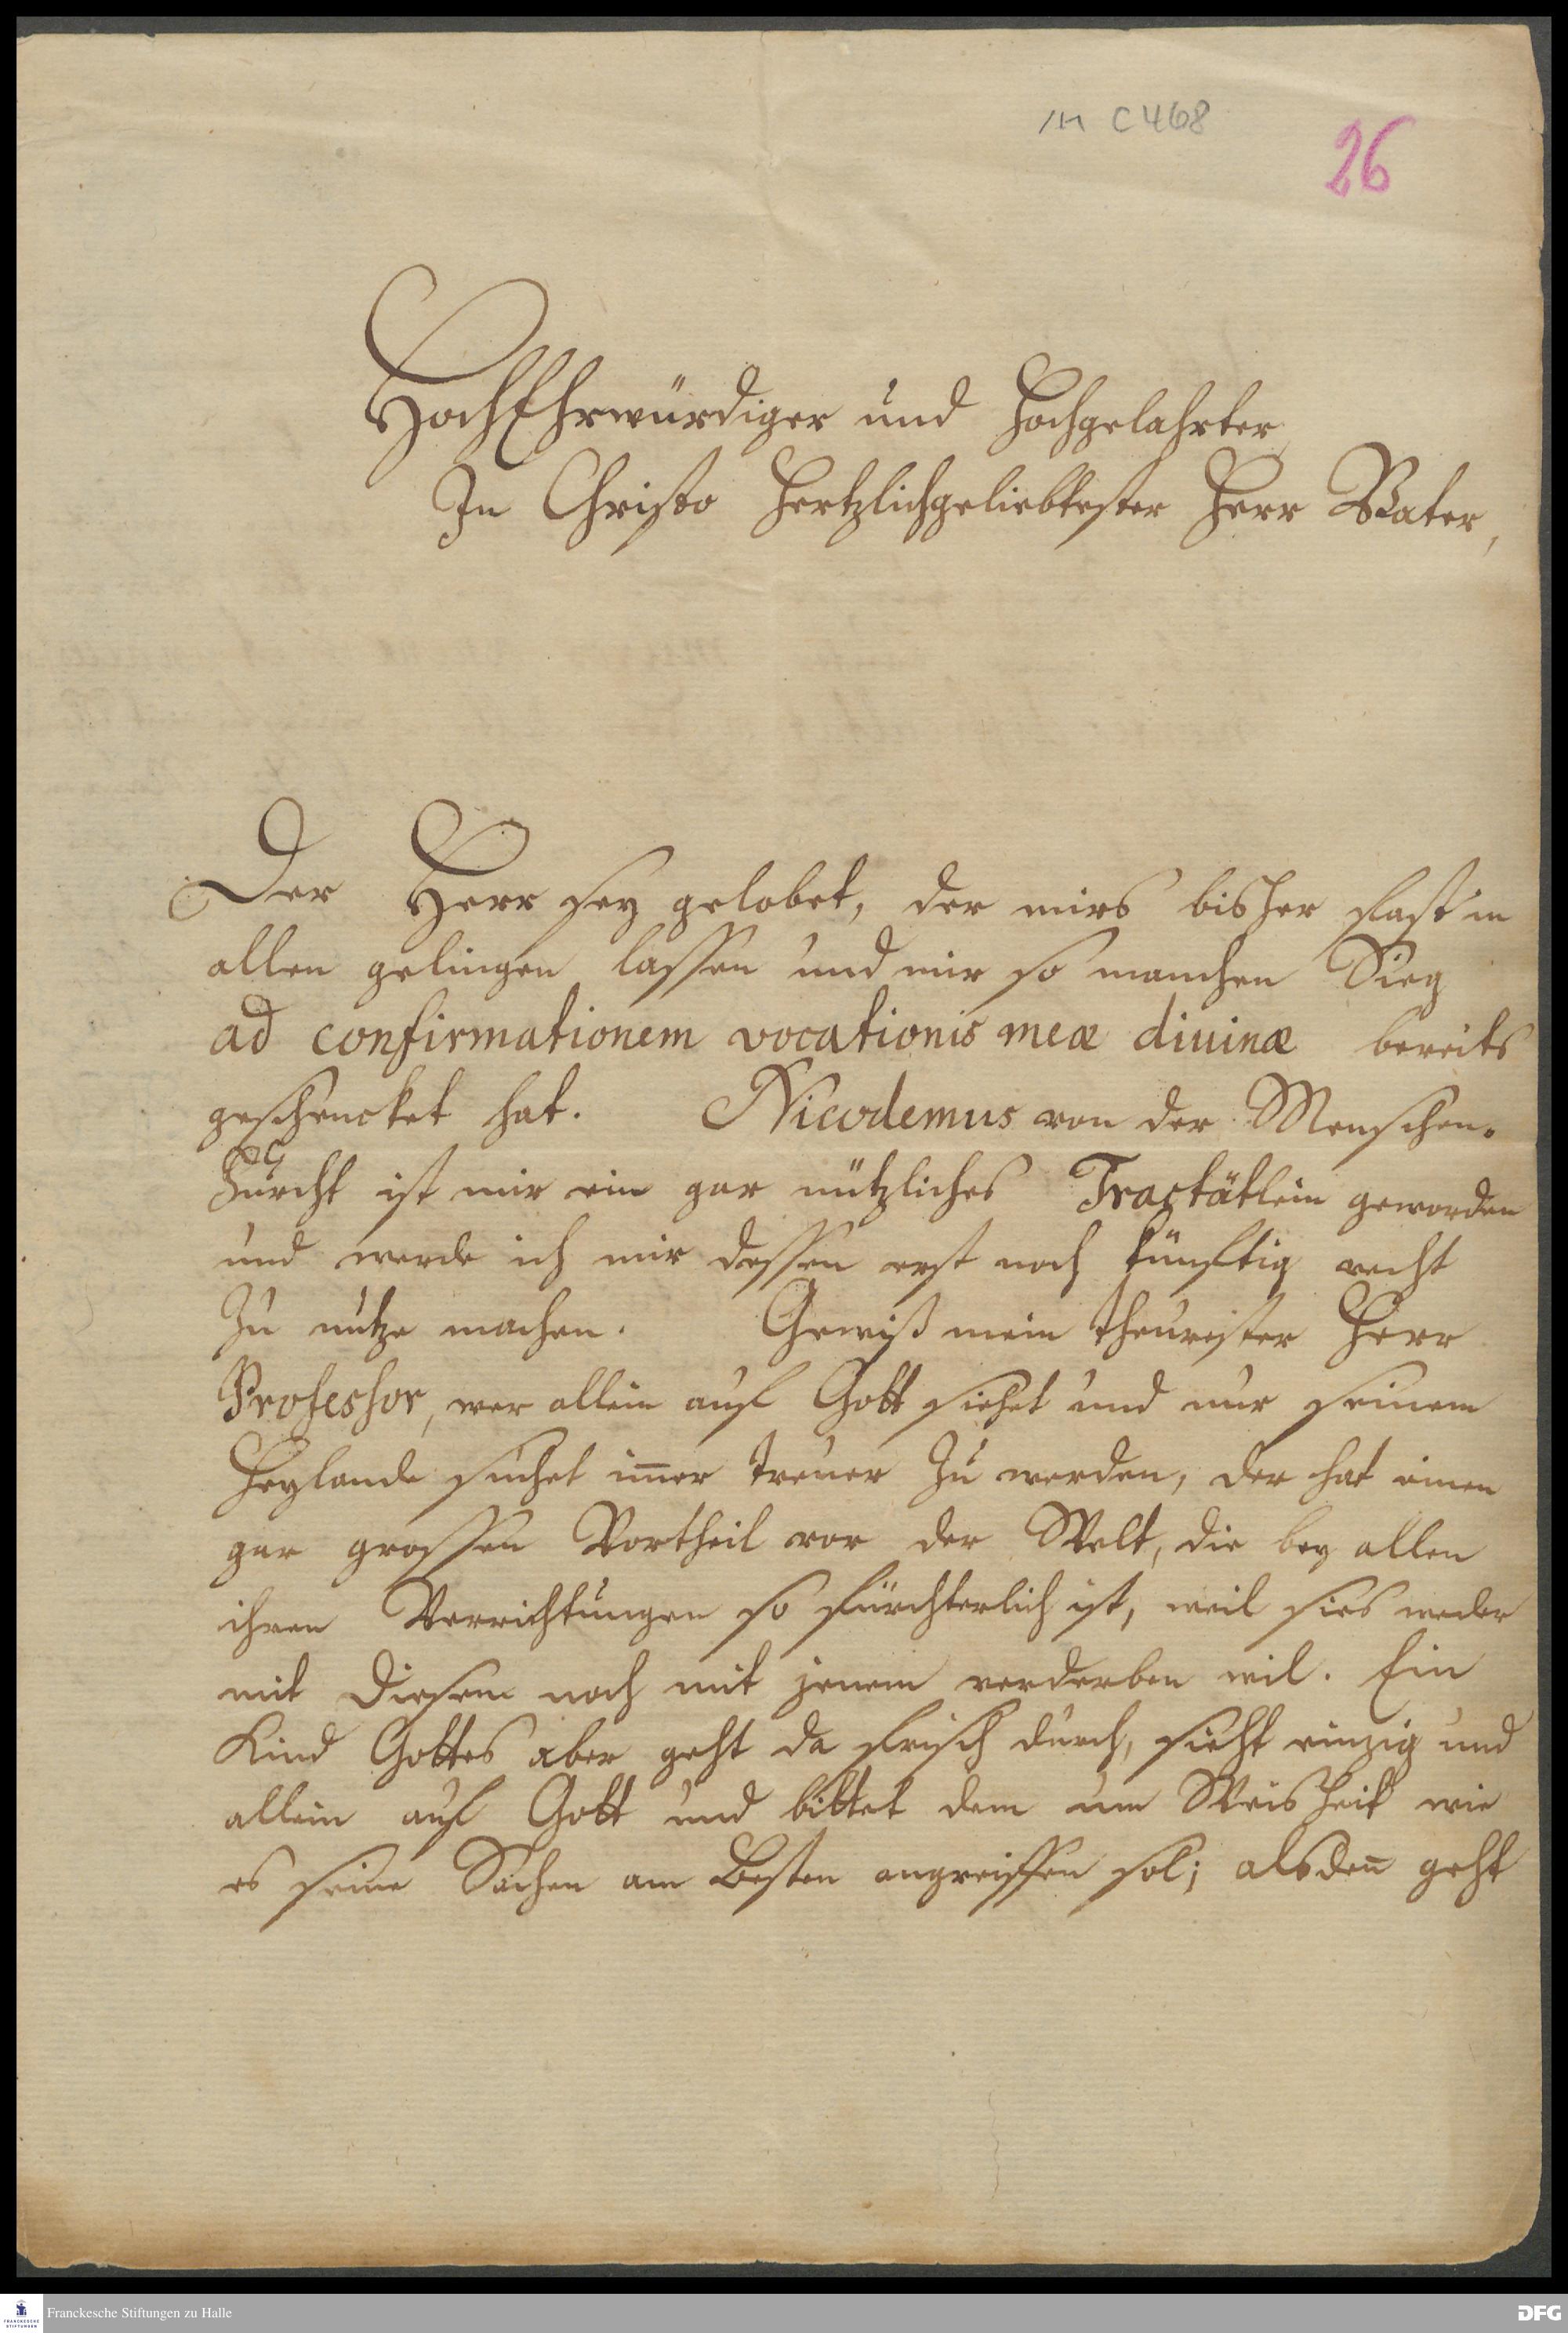 1H C 468
26
HochEhrwürdiger und Hochgelahrter
In Christo Hertzlichgeliebtester Herr Vater,
Der Herr sey gelobet, der mirs bisher fast in
allen gelingen lassen und mir so manchen Sieg
ad confirmationem vocationis meæ divinæ bereits
geschencket hat. Nicodemus von der Menschen-
Furcht ist mir ein gar nützliches Tractätlein geworden
und werde ich mir dessen erst noch künftig recht
zu nutze machen. Gewiß mein theurester Herr
Professor, wer allein auf Gott siehet und nur seinem
Heylande suchet im̄er treuer zu werden, der hat einen
gar grossen Vortheil vor der Welt, die bey allen
ihren Verrichtungen so fürchterlich ist, weil sies weder
mit diesem noch mit jenem verderben wil. Ein
Kind Gottes aber geht da frisch durch, sieht einzig und
allein auf Gott und bittet dem um Weisheit wie
es seine Sachen am Besten angreiffen sol; alsden̄ geht
Franckesche Stiftungen zu Halle
DFG